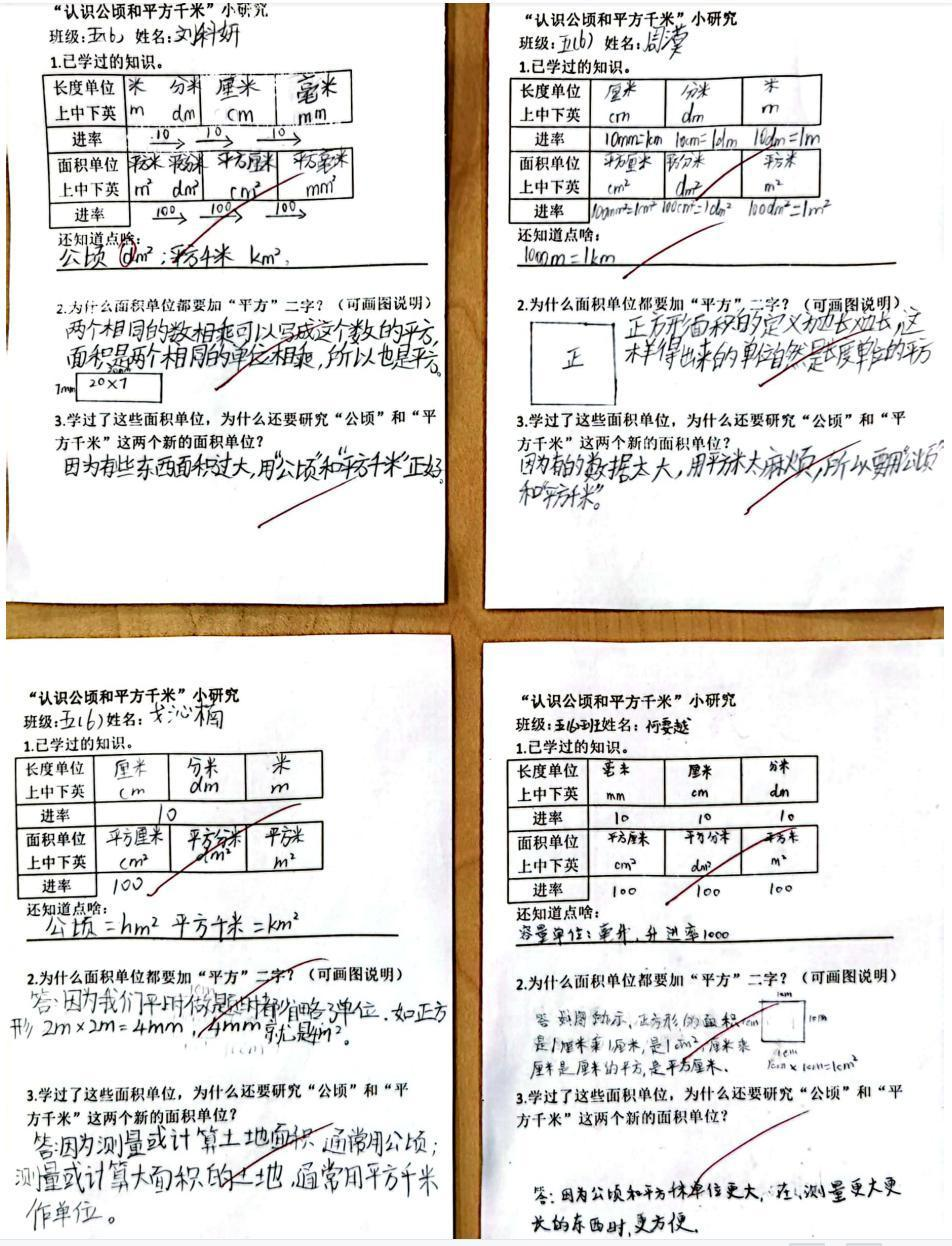 “认识公顷和平方千米”小研究
班级:五(6) 姓名:刘科妍
1.已学过的知识。
长度单位 米 分米 厘米 毫米
上中下英 m dm cm mm
进率 10 10 10
面积单位 平方米 平方分米 平方厘米 平方毫米
上中下英 m² dm² cm² mm²
进率 100 100 100
还知道点啥:
公顷 dm²;平方千米 km²,
2.为什么面积单位都要加“平方”二字?(可画图说明)
两个相同的数相乘可以写成这个数的平方,
面积是两个相同的单位相乘,所以也是平方。
7mm 20×7
3.学过了这些面积单位,为什么还要研究“公顷”和“平
方千米”这两个新的面积单位?
因为有些东西面积过大,用“公顷”和“平方千米”正好。
“认识公顷和平方千米”小研究
班级:五(6) 姓名:周
1.已学过的知识。
长度单位 厘米 分米 米
上中下英 cm dm m
进率 10mm=1cm 10cm=1dm 10dm=1m
面积单位 平方厘米 平方分米 平方米
上中下英 cm² dm² m²
进率 100mm²=1cm² 100cm²=1dm² 100dm²=1m²
还知道点啥:
1000m=1km
2.为什么面积单位都要加“平方”二字?(可画图说明)
正方形面积的定义为边长边长,这
正
样得出来的单位自然是长度单位的平方
3.学过了这些面积单位,为什么还要研究“公顷”和“平
方千米”这两个新的面积单位?
因为有的数据太大,用平方米太麻烦,所以要用“公顷”
和“平方千米”。
“认识公顷和平方千米”小研究
班级:五(6) 姓名:戈沁楠
1.已学过的知识。
长度单位 厘米 分米 米
上中下英 cm dm m
进率 10
面积单位 平方厘米 平方分米 平方米
上中下英 cm² dm² m²
进率 100
还知道点啥:
公顷=hm² 平方千米=km²
2.为什么面积单位都要加“平方”二字?(可画图说明)
答:因为我们平时做题时都省略了单位.如正方
形 2m×2m=4mm,4mm就是4m²。
3.学过了这些面积单位,为什么还要研究“公顷”和“平
方千米”这两个新的面积单位?
答:因为测量或计算土地面积,通常用公顷;
测量或计算大面积的土地,通常用平方千米
作单位。
“认识公顷和平方千米”小研究
班级:五(6)班姓名:何越
1.已学过的知识。
长度单位 毫米 厘米 分米
上中下英 mm cm dm
进率 10 10 10
面积单位 平方厘米 平方分米 平方米
上中下英 cm² dm² m²
进率 100 100 100
还知道点啥:
容量单位:毫升,升 进率1000
2.为什么面积单位都要加“平方”二字?(可画图说明)
1cm
答:如图所示,正方形的面积 1cm 1cm
是1厘米乘1厘米,是1cm²,厘米乘 1cm
厘米是厘米的平方,是平方厘米. 1cm×1cm=1cm²
3.学过了这些面积单位,为什么还要研究“公顷”和“平
方千米”这两个新的面积单位?
答:因为公顷和平方千米单位更大,在测量更大更
长的东西时,更方便.